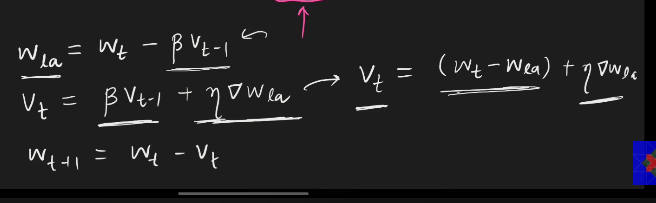 w_la = w_t − βv_t-1
v_t = βv_t-1 + η∇w_la → v_t = (w_t − w_la) + η∇w_la
w_t+1 = w_t − v_t